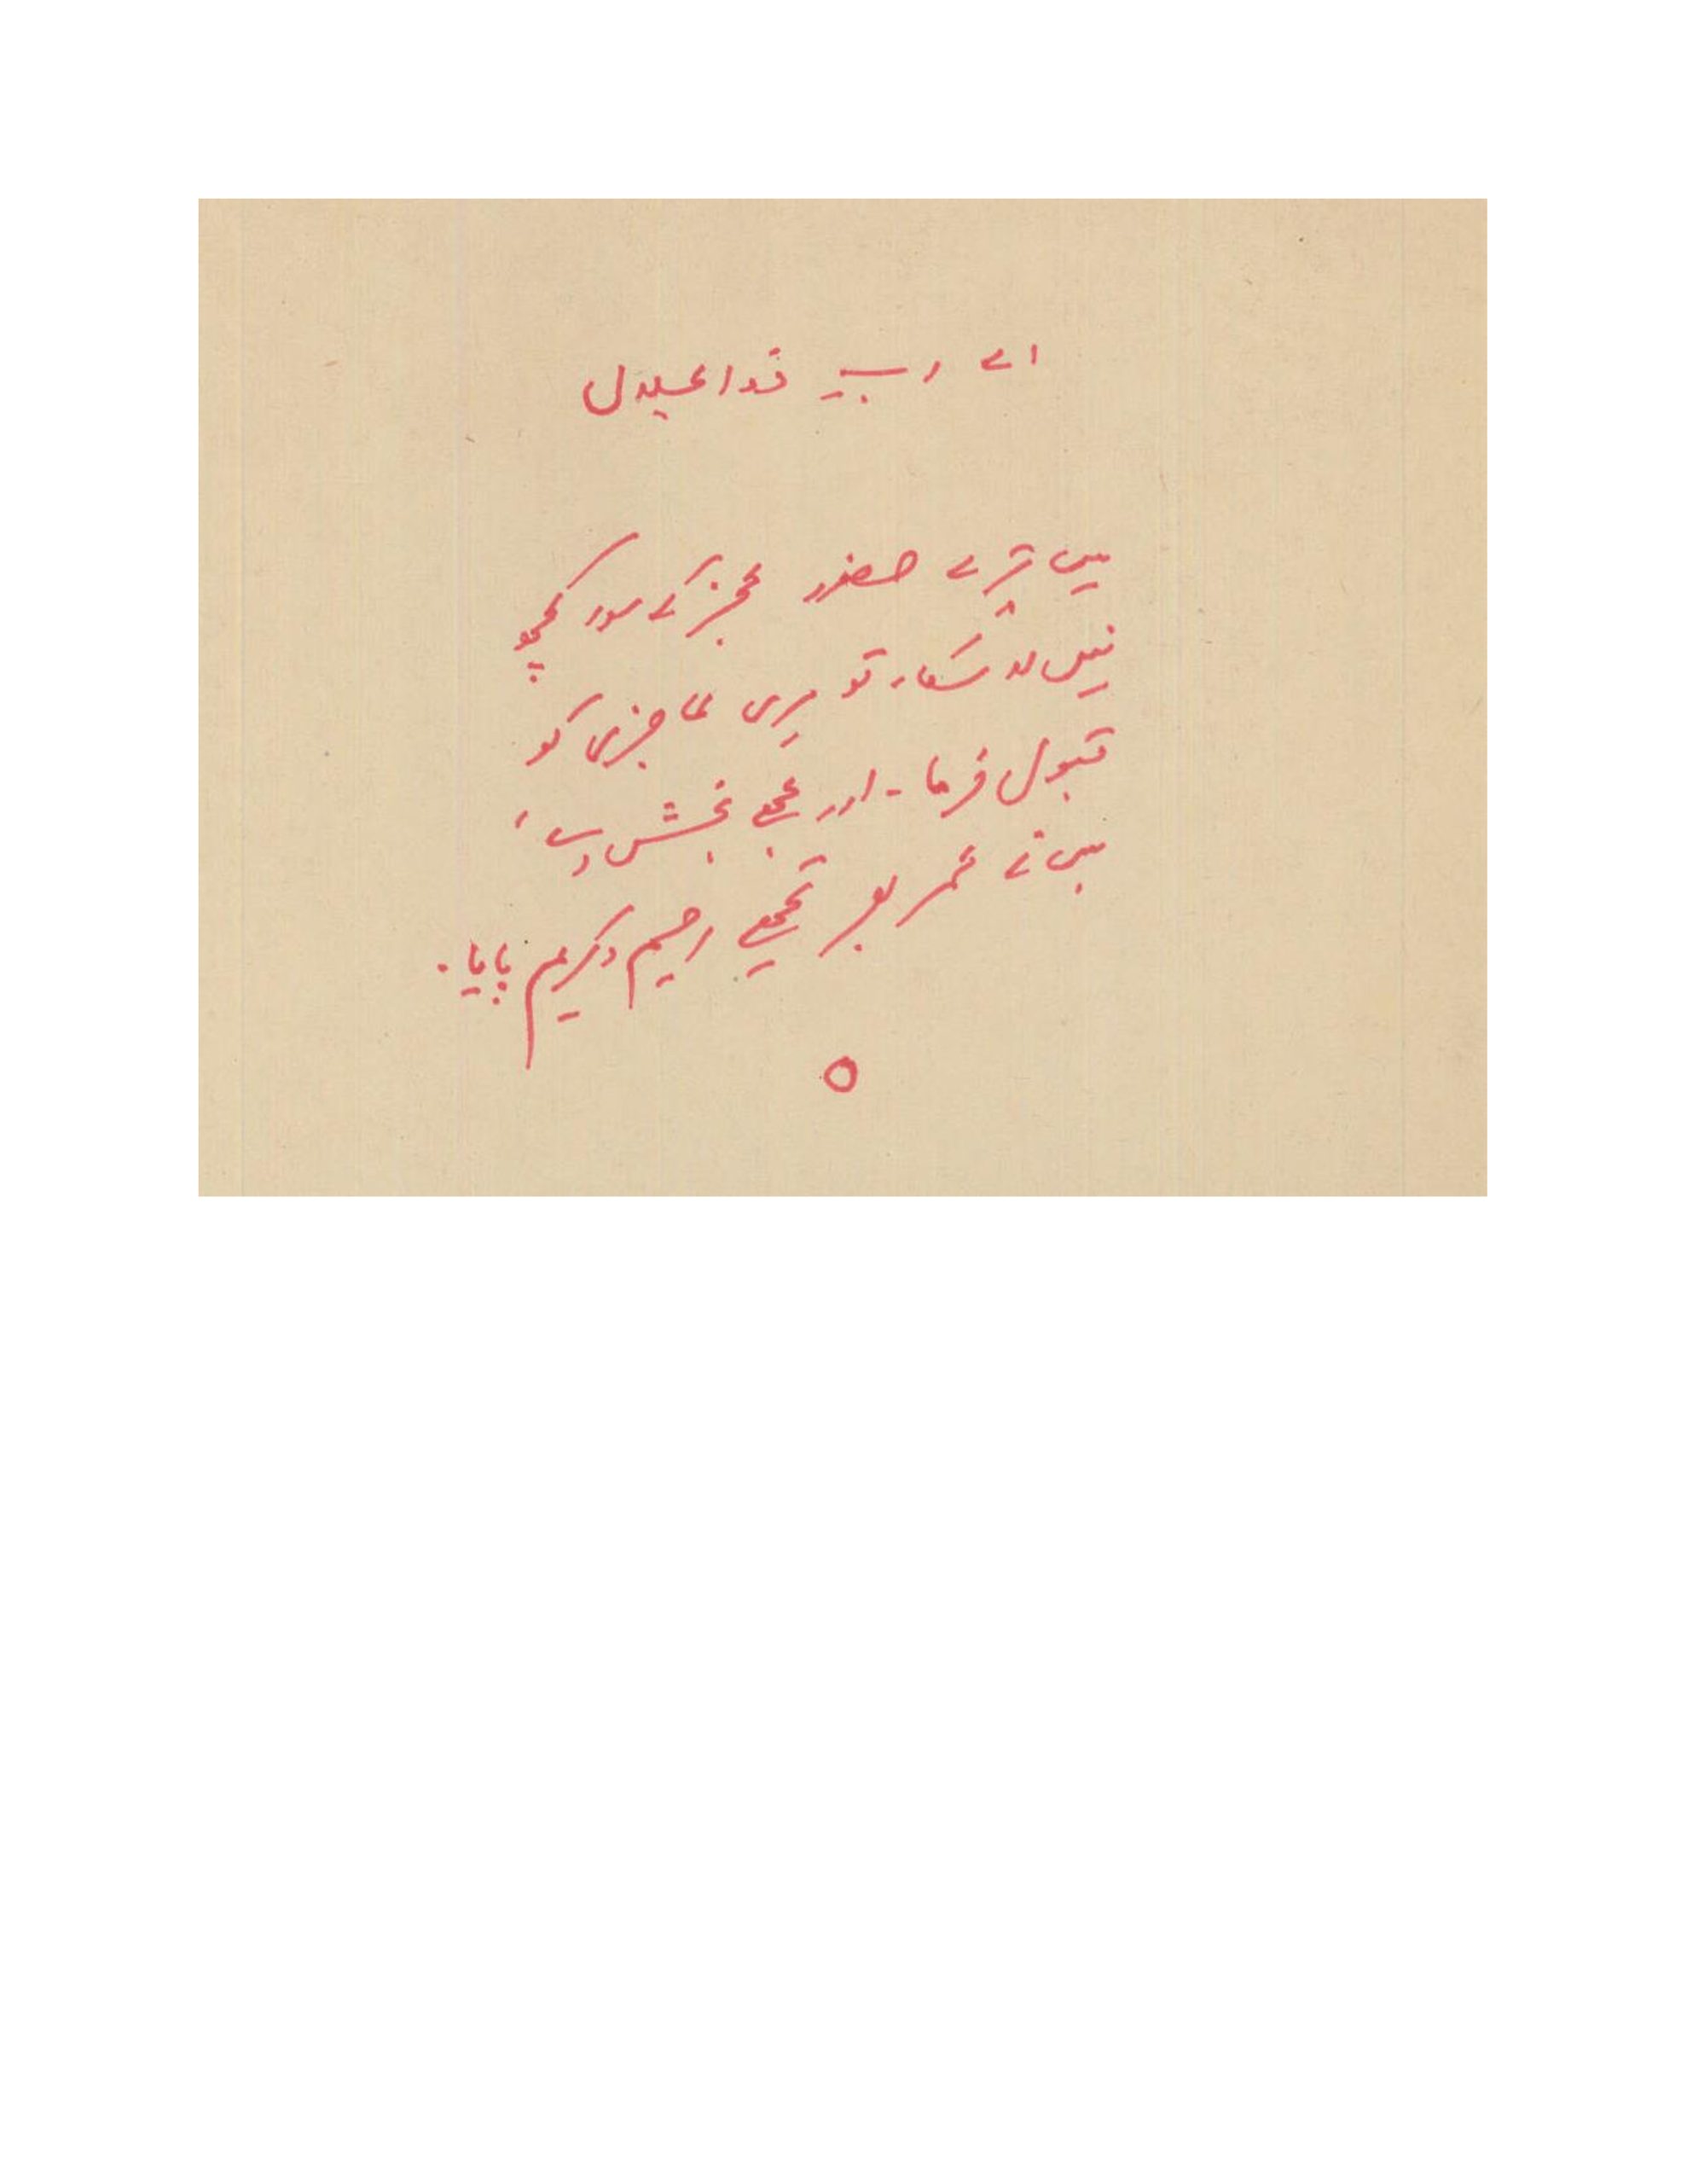 اے ربِ ذوالجلال
میں تیرے حضور عجز کے سوا کچھ
نہیں لا سکا۔ تو میری عاجزی کو
قبول فرما۔ اور مجھے بخش دے،
میں نے عمر بھر تجھے رحیم و کریم پایا۔